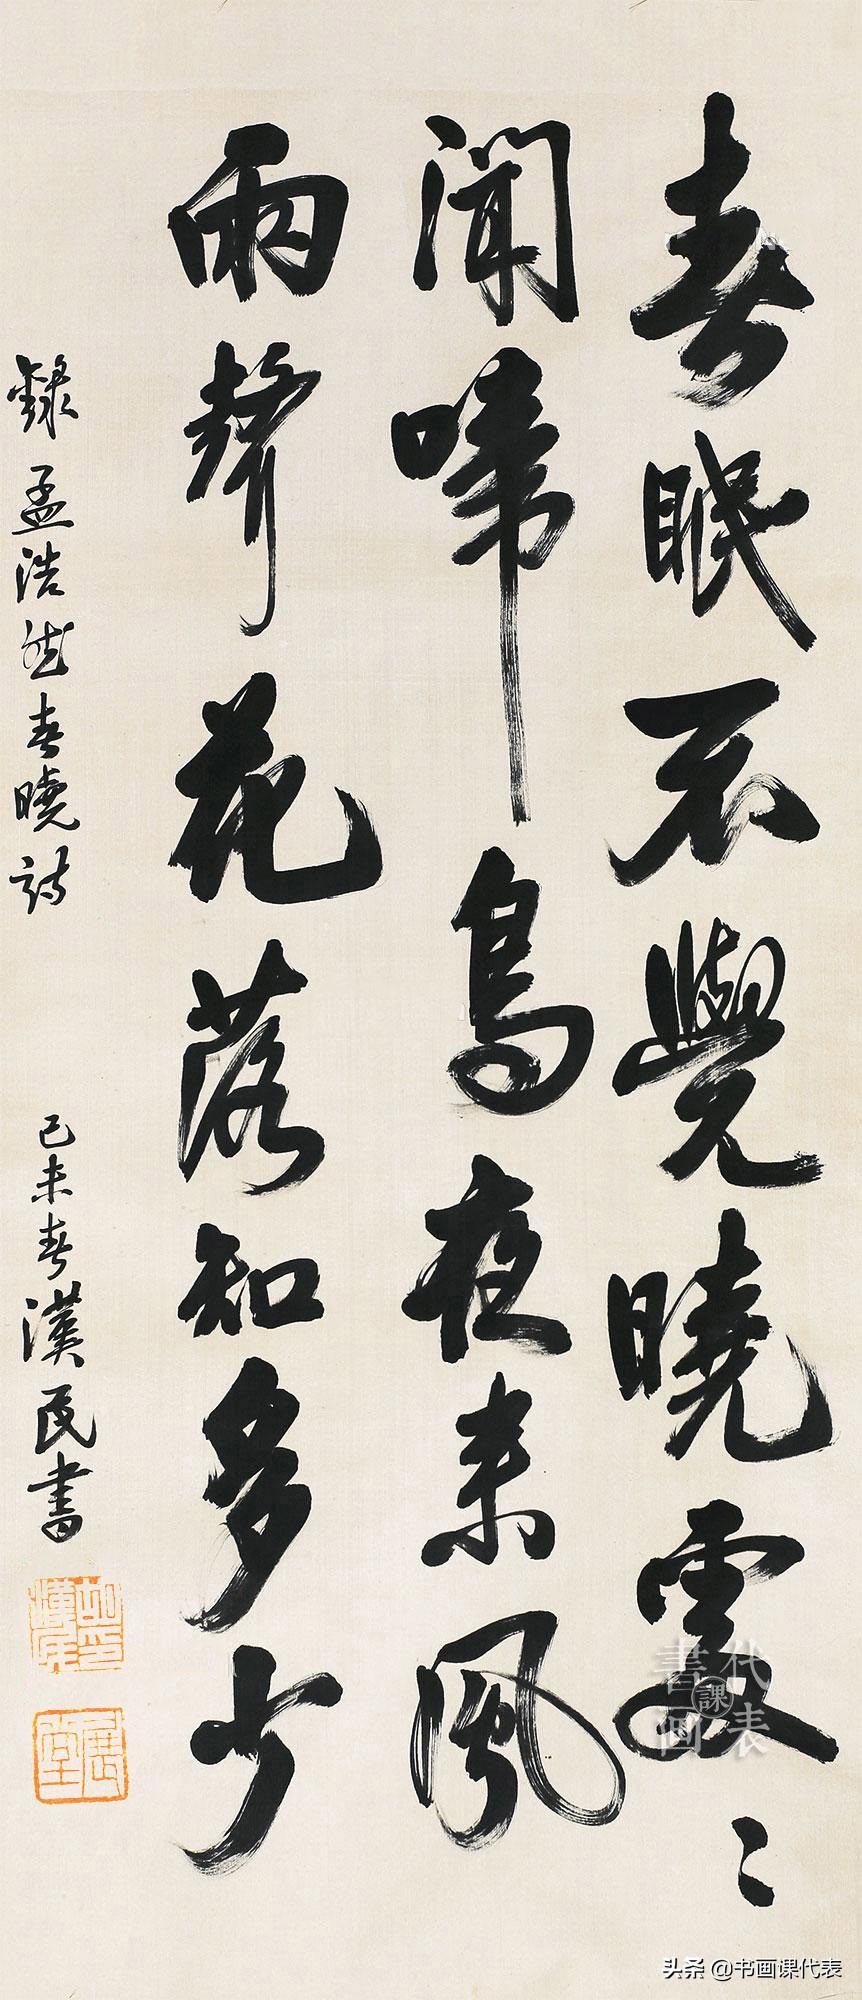 春眠不覺曉處〻
聞啼鳥夜來風
雨聲花落知多少
錄孟浩然春曉詩
己未春漢民書
胡漢民印
展堂
書画課代表
头条 @书画课代表